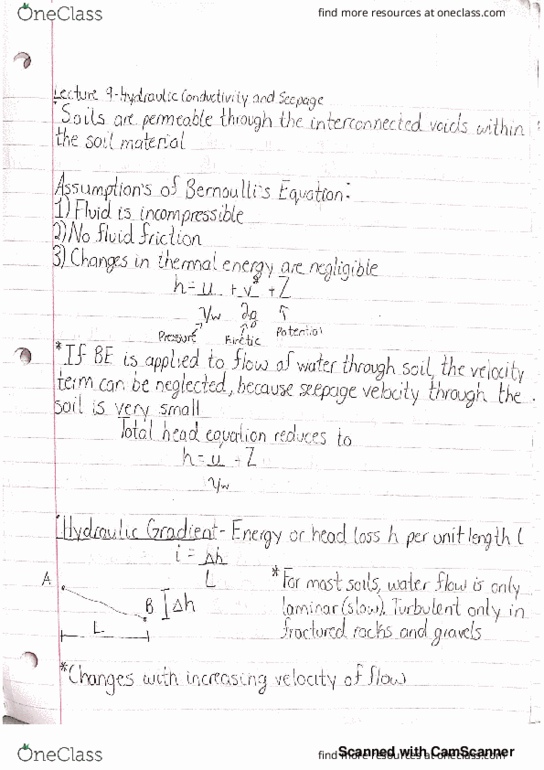 OneClass
find more resources at oneclass.com
Lecture 9-Hydraulic Conductivity and Seepage
*Soils are permeable through the interconnected voids within
the soil material
Assumption's of Bernoulli's Equation:
1) Fluid is incompressible
2) No fluid friction
3) Changes in thermal energy are negligible
h = u + v² + Z
γw 2g ↑
Pressure Kinetic Potential
*If BE is applied to flow of water through soil, the velocity
term can be neglected, because seepage velocity through the
soil is very small
Total head equation reduces to
h = u + Z
γw
Hydraulic Gradient - Energy or head loss h per unit length l
i = Δh
L
A
B Δh
L
*For most soils, water flow is only
laminar (slow). Turbulent only in
fractured rocks and gravels
*Changes with increasing velocity of flow
OneClass
find more resources at oneclass.com
Scanned with CamScanner